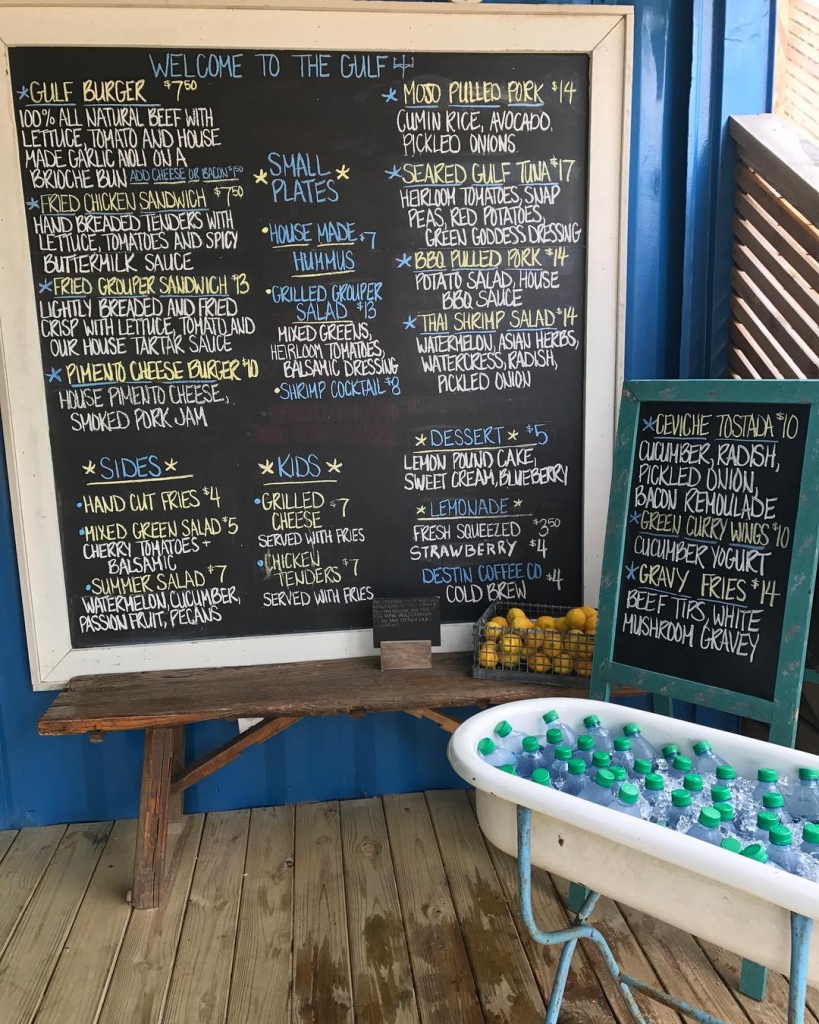 WELCOME TO THE GULF
GULF BURGER $7.50
100% ALL NATURAL BEEF WITH
LETTUCE, TOMATO AND HOUSE
MADE GARLIC AIOLI ON A
BRIOCHE BUN ADD CHEESE OR BACON $1.50
FRIED CHICKEN SANDWICH $7.50
HAND BREADED TENDERS WITH
LETTUCE, TOMATOES AND SPICY
BUTTERMILK SAUCE
FRIED GROUPER SANDWICH $13
LIGHTLY BREADED AND FRIED
CRISP WITH LETTUCE, TOMATO, AND
OUR HOUSE TARTAR SAUCE
PIMENTO CHEESE BURGER $10
HOUSE PIMENTO CHEESE,
SMOKED PORK JAM
SIDES
HAND CUT FRIES $4
MIXED GREEN SALAD $5
CHERRY TOMATOES +
BALSAMIC
SUMMER SALAD $7
WATERMELON, CUCUMBER,
PASSION FRUIT, PECANS
SMALL
PLATES
HOUSE MADE $7
HUMMUS
GRILLED GROUPER
SALAD $13
MIXED GREENS,
HEIRLOOM TOMATOES,
BALSAMIC DRESSING
SHRIMP COCKTAIL $8
KIDS
GRILLED $7
CHEESE
SERVED WITH FRIES
CHICKEN $7
TENDERS
SERVED WITH FRIES
MOJO PULLED PORK $14
CUMIN RICE, AVOCADO,
PICKLED ONIONS
SEARED GULF TUNA $17
HEIRLOOM TOMATOES, SNAP
PEAS, RED POTATOES,
GREEN GODDESS DRESSING
BBQ PULLED PORK $14
POTATO SALAD, HOUSE
BBQ SAUCE
THAI SHRIMP SALAD $14
WATERMELON, ASIAN HERBS,
WATERCRESS, RADISH,
PICKLED ONION
DESSERT $5
LEMON POUND CAKE,
SWEET CREAM, BLUEBERRY
LEMONADE
FRESH SQUEEZED $3.50
STRAWBERRY $4
DESTIN COFFEE CO $4
COLD BREW
CEVICHE TOSTADA $10
CUCUMBER, RADISH,
PICKLED ONION,
BACON REMOULADE
GREEN CURRY WINGS $10
CUCUMBER YOGURT
GRAVY FRIES $14
BEEF TIPS, WHITE
MUSHROOM GRAVEY